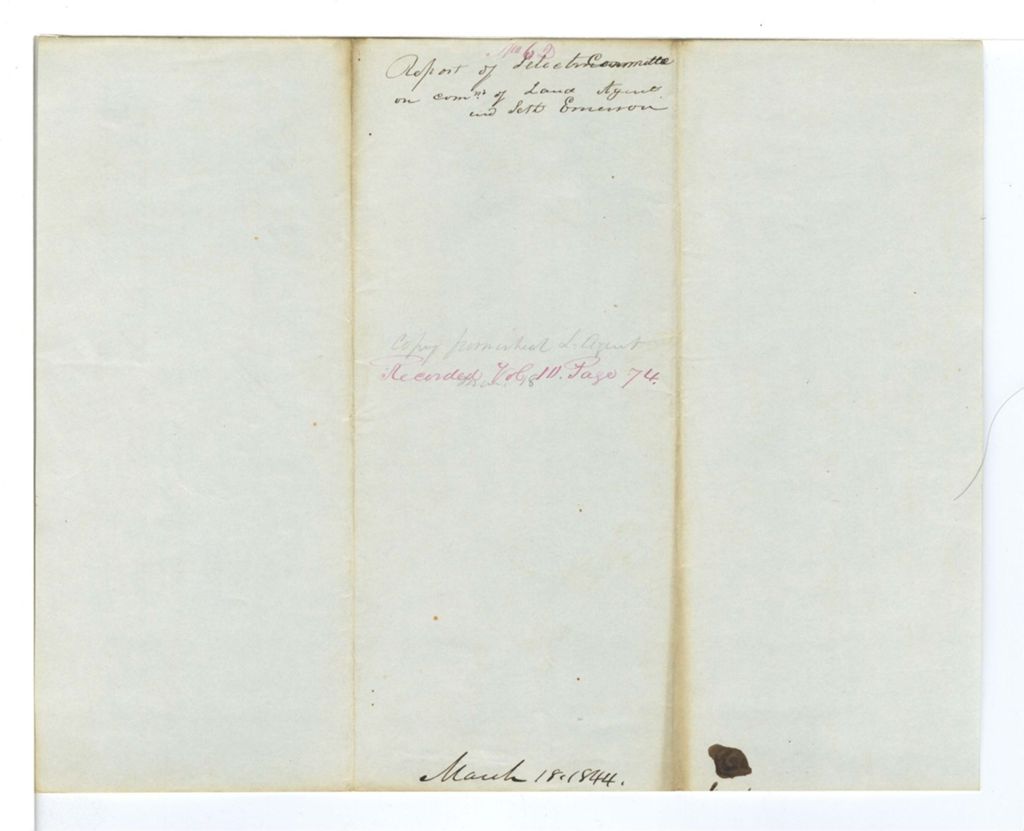 No 62
Report of Select Committee
on comn. of Land Agent
and Seth Emerson
Copy furnished L. Agent
Recorded Vol. III. Page 74.
March 18. 1844.